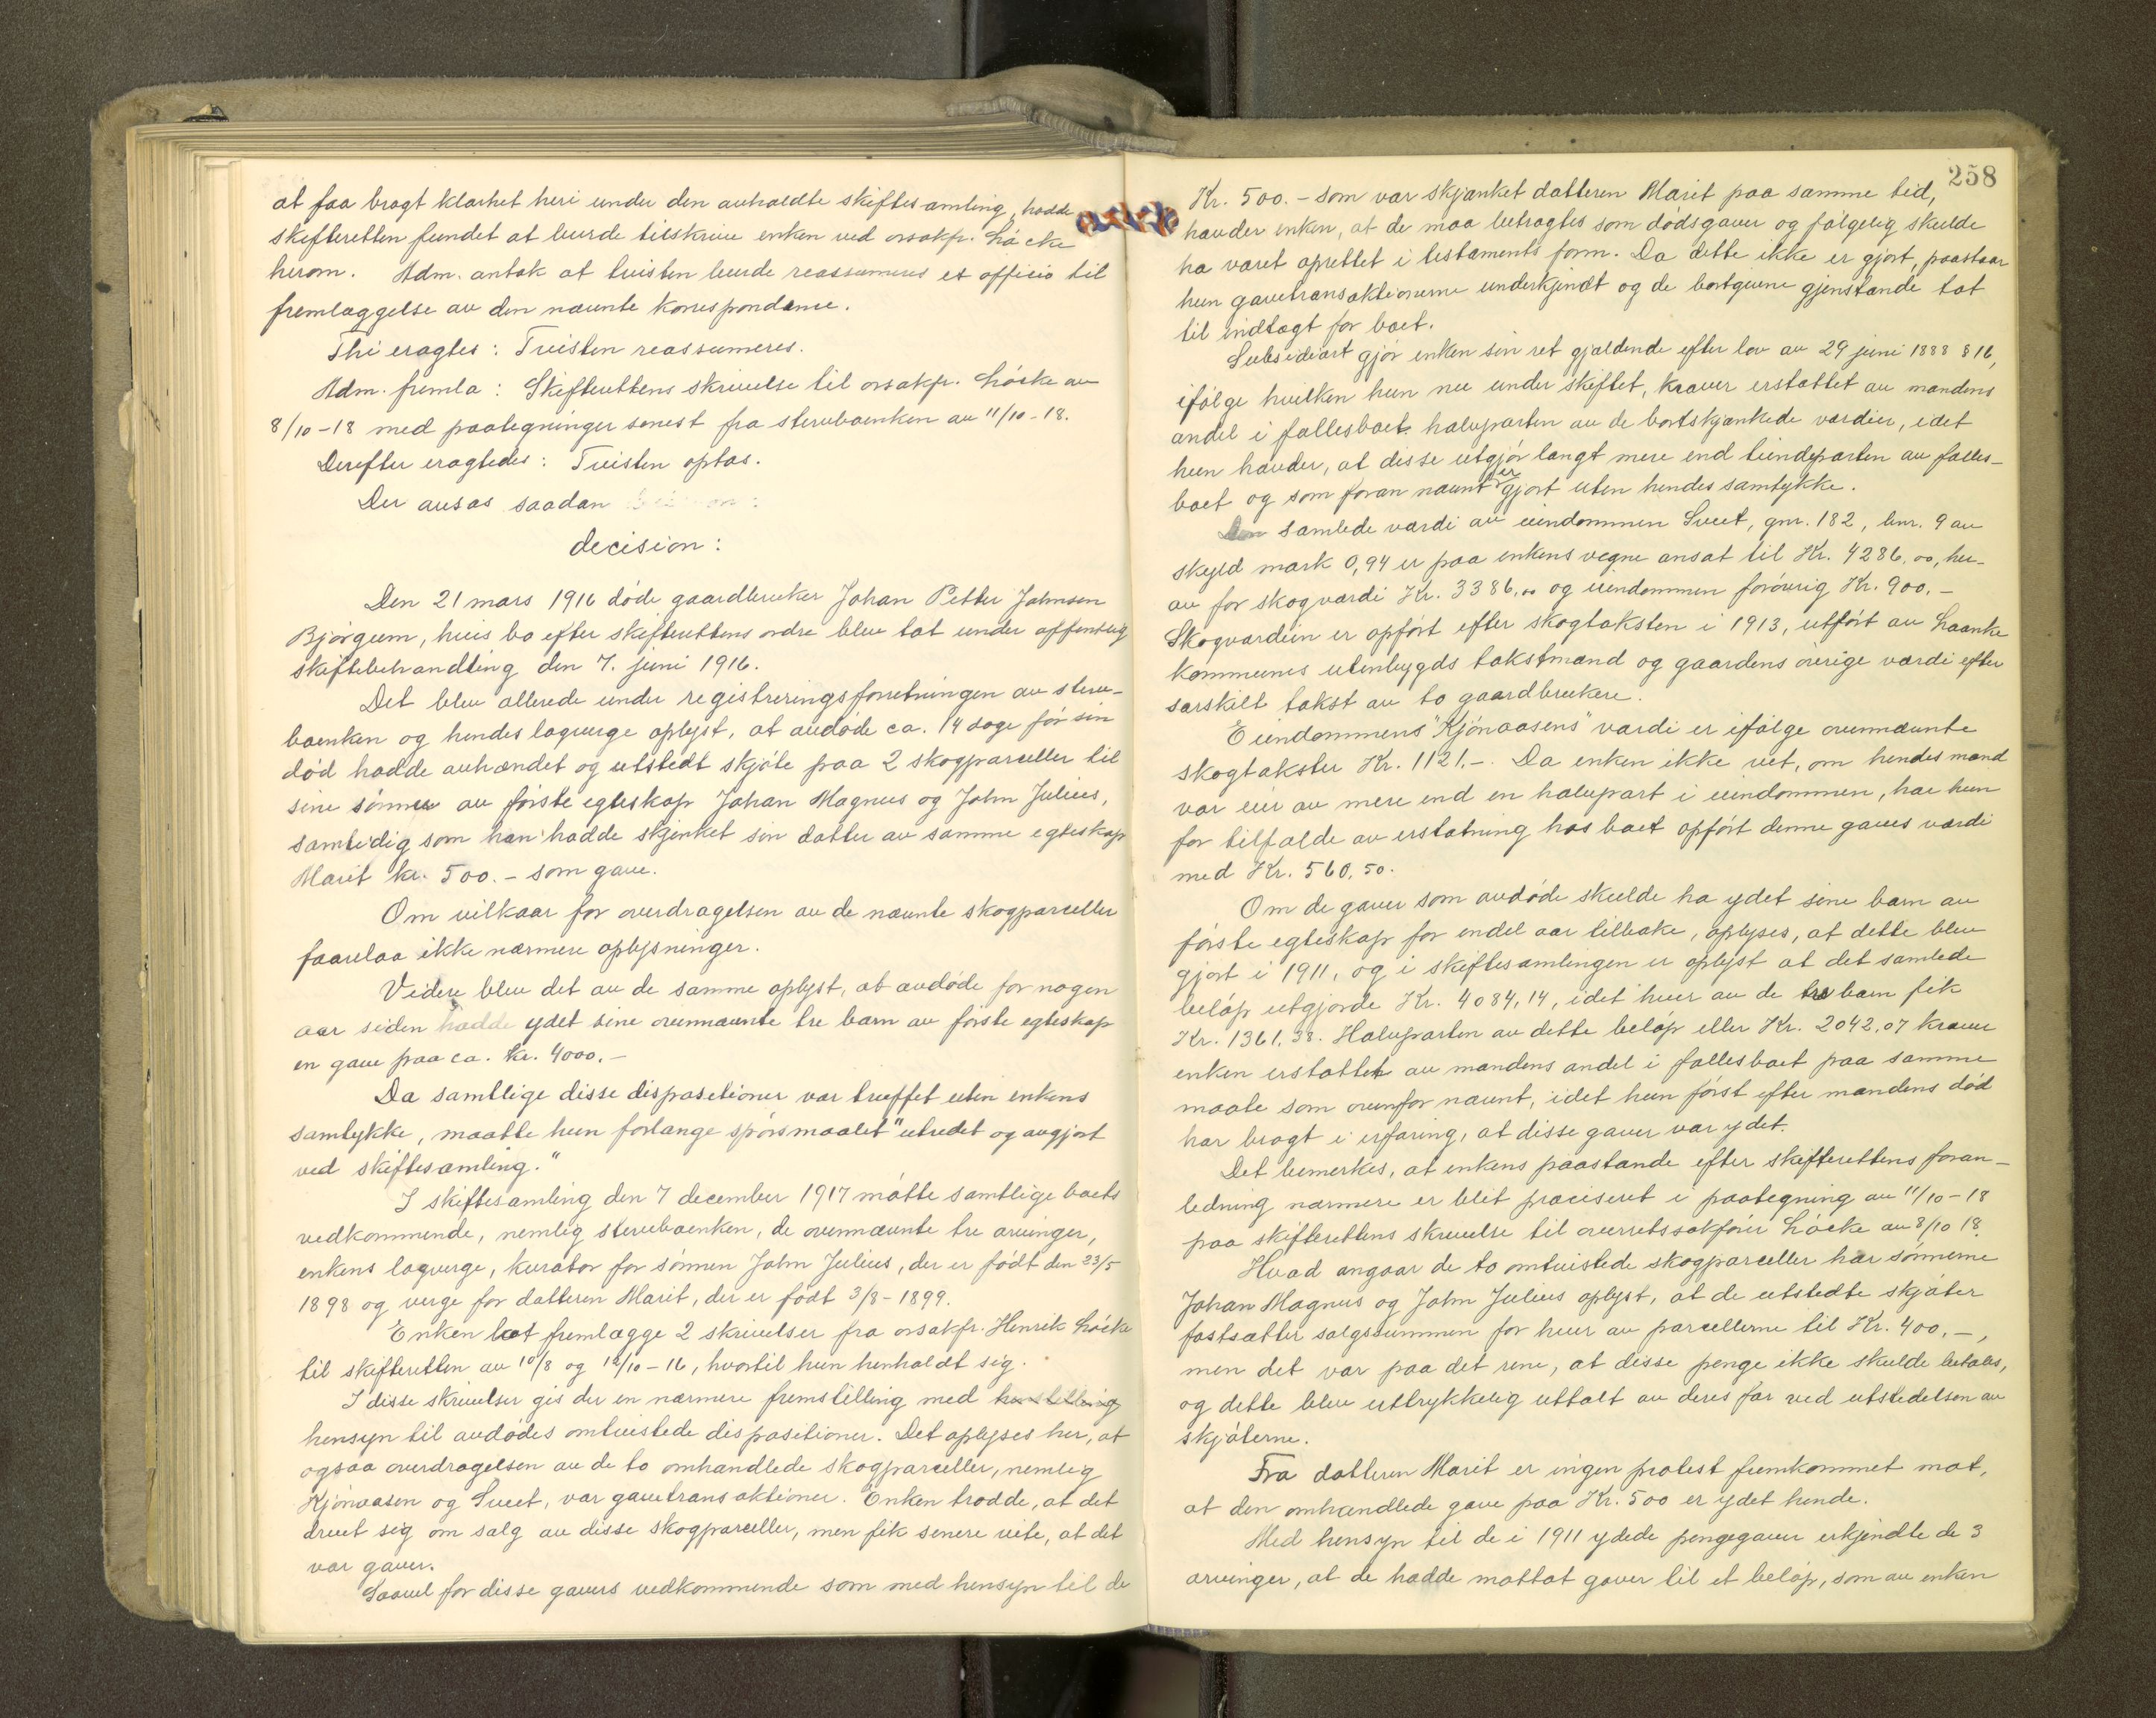 at faa bragt klarhet heri under den avholdte skiftesamling, hadde
skifteretten fundet at burde tilskrive enken ved orsakfr. Løcke
herom. Adm. antok at tvisten burde reassumeres ex officio til
fremlæggelse av den nævnte korrespondance.
Thi eragtes: Tvisten reassumeres.
Adm. fremla: Skifterettens skrivelse til orsakfr. Løcke av
8/10-18 med paategninger senest fra stervboenken av 11/10-18.
Derefter eragtedes: Tvisten optas.
Der avsas saadan
decision:
Den 21 mars 1916 døde gaardbruker Johan Petter Johnsen
Bjørgum, hvis bo efter skifterettens ordre blev tat under offentlig
skiftebehandling den 7. juni 1916.
Det blev allerede under registreringsforretningen av sterv-
boenken og hendes lagverge oplyst, at avdøde ca. 14 dage før sin
død hadde avhændet og utstedt skjøte paa 2 skogparceller til
sine sønner av første egteskap Johan Magnus og John Julius,
samtidig som han hadde skjenket sin datter av samme egteskap
Marit kr. 500.- som gave.
Om vilkaar for overdragelsen av de nævnte skogparceller
foarelaa ikke nærmere oplysninger.
Videre blev det av de samme oplyst, at avdøde for nogen
aar siden hadde ydet sine ovennævnte tre barn av første egteskap
en gave paa ca. kr. 4000.-
Da samtlige disse dispositioner var truffet uten enkens
samtykke, maatte hun forlange spørsmaalet "utredet og avgjort
ved skiftesamling."
I skiftesamling den 7 december 1917 møtte samtlige boets
vedkommende, nemlig stervboenken, de ovennævnte tre arvinger,
enkens lagverge, kurator for sønnen John Julius, der er født den 23/5
1898 og verge for datteren Marit, der er født 3/8-1899.
Enken lot fremlægge 2 skrivelser fra orsakfr. Henrik Løcke
til skifteretten av 10/8 og 12/10-16, hvortil hun henholdt sig.
I disse skrivelser gis der en nærmere fremstilling med henstilling
hensyn til avdødes omtvistede dispositioner. Det oplyses her, at
ogsaa overdragelsen av de to omhandlede skogparceller, nemlig
Kjønaasen og Sveet, var gavetransaktioner. Enken trodde, at det
dreiet sig om salg av disse skogparceller, men fik senere vite, at det
var gaver.
Saavel for disse gavers vedkommende som med hensyn til de
258
Kr. 500.- som var skjænket datteren Marit paa samme tid,
hævder enken, at de maa betragtes som dødsgaver og følgelig skulde
ha været oprettet i testaments form. Da dette ikke er gjort, paastaar
hun gavetransaktionerne underkjendt og de bortgivne gjenstande tat
til indtægt for boet.
Subsidiært gjør enken sin ret gjældende efter lov av 29 juni 1888 § 16,
ifølge hvilken hun nu under skiftet, kræver erstattet av mandens
andel i fællesboet halvparten av de bortskjænkede værdier, idet
hun hævder, at disse utgjør langt mere end tiendeparten av fælles-
boet og som foran nævnt er gjort uten hendes samtykke.
Den samlede værdi av eiendommen Sveet, gnr. 182, bnr. 9 av
skyld mark 0,94 er paa enkens vegne ansat til Kr. 4286,00, her-
av for skogværdi Kr. 3386,00 og eiendommen forøvrig Kr. 900.-
Skogværdien er opført efter skogtaksten i 1913, utført av Haanke
kommunes utenbygds takstmænd og gaardens øvrige værdi efter
særskilt takst av to gaardbrukere.
Eiendommens "Kjønaasens" værdi er ifølge ovennævnte
skogtakster Kr. 1121.-. Da enken ikke vet, om hendes mand
var eier av mere end en halvpart i eiendommen, har hun
for tilfælde av erstatning hos boet opført denne gaves værdi
med Kr. 560,50.
Om de gaver som avdøde skulde ha ydet sine barn av
første egteskap for endel aar tilbake, oplyses, at dette blev
gjort i 1911, og i skiftesamlingen er oplyst at det samlede
beløp utgjorde Kr. 4084,14, idet hver av de tre barn fik
Kr. 1361,38. Halvparten av dette beløp eller Kr. 2042,07 kræver
enken erstattet av mandens andel i fællesboet paa samme
maate som ovenfor nævnt, idet hun først efter mandens død
har bragt i erfaring, at disse gaver var ydet.
Det bemerkes, at enkens paastande efter skifterettens foran-
ledning nærmere er blit præciseret i paategning av 11/10-18
paa skifterettens skrivelse til overretssakfører Løcke av 8/10 18.
Hvad angaar de to omtvistede skogparceller har sønnerne
Johan Magnus og John Julius oplyst, at de utstedte skjøter
fastsætter salgssummen for hver av parcellerne til Kr. 400.-,
men det var paa det rene, at disse penge ikke skulde betales,
og dette blev uttrykkelig uttalt av deres far ved utstedelsen av
skjøterne.
Fra datteren Marit er ingen protest fremkommet mot,
at den omhandlede gave paa Kr. 500 er ydet hende.
Med hensyn til de i 1911 ydede pengegaver erkjendte de 3
arvinger, at de hadde mottat gaver til et beløp, som av enken